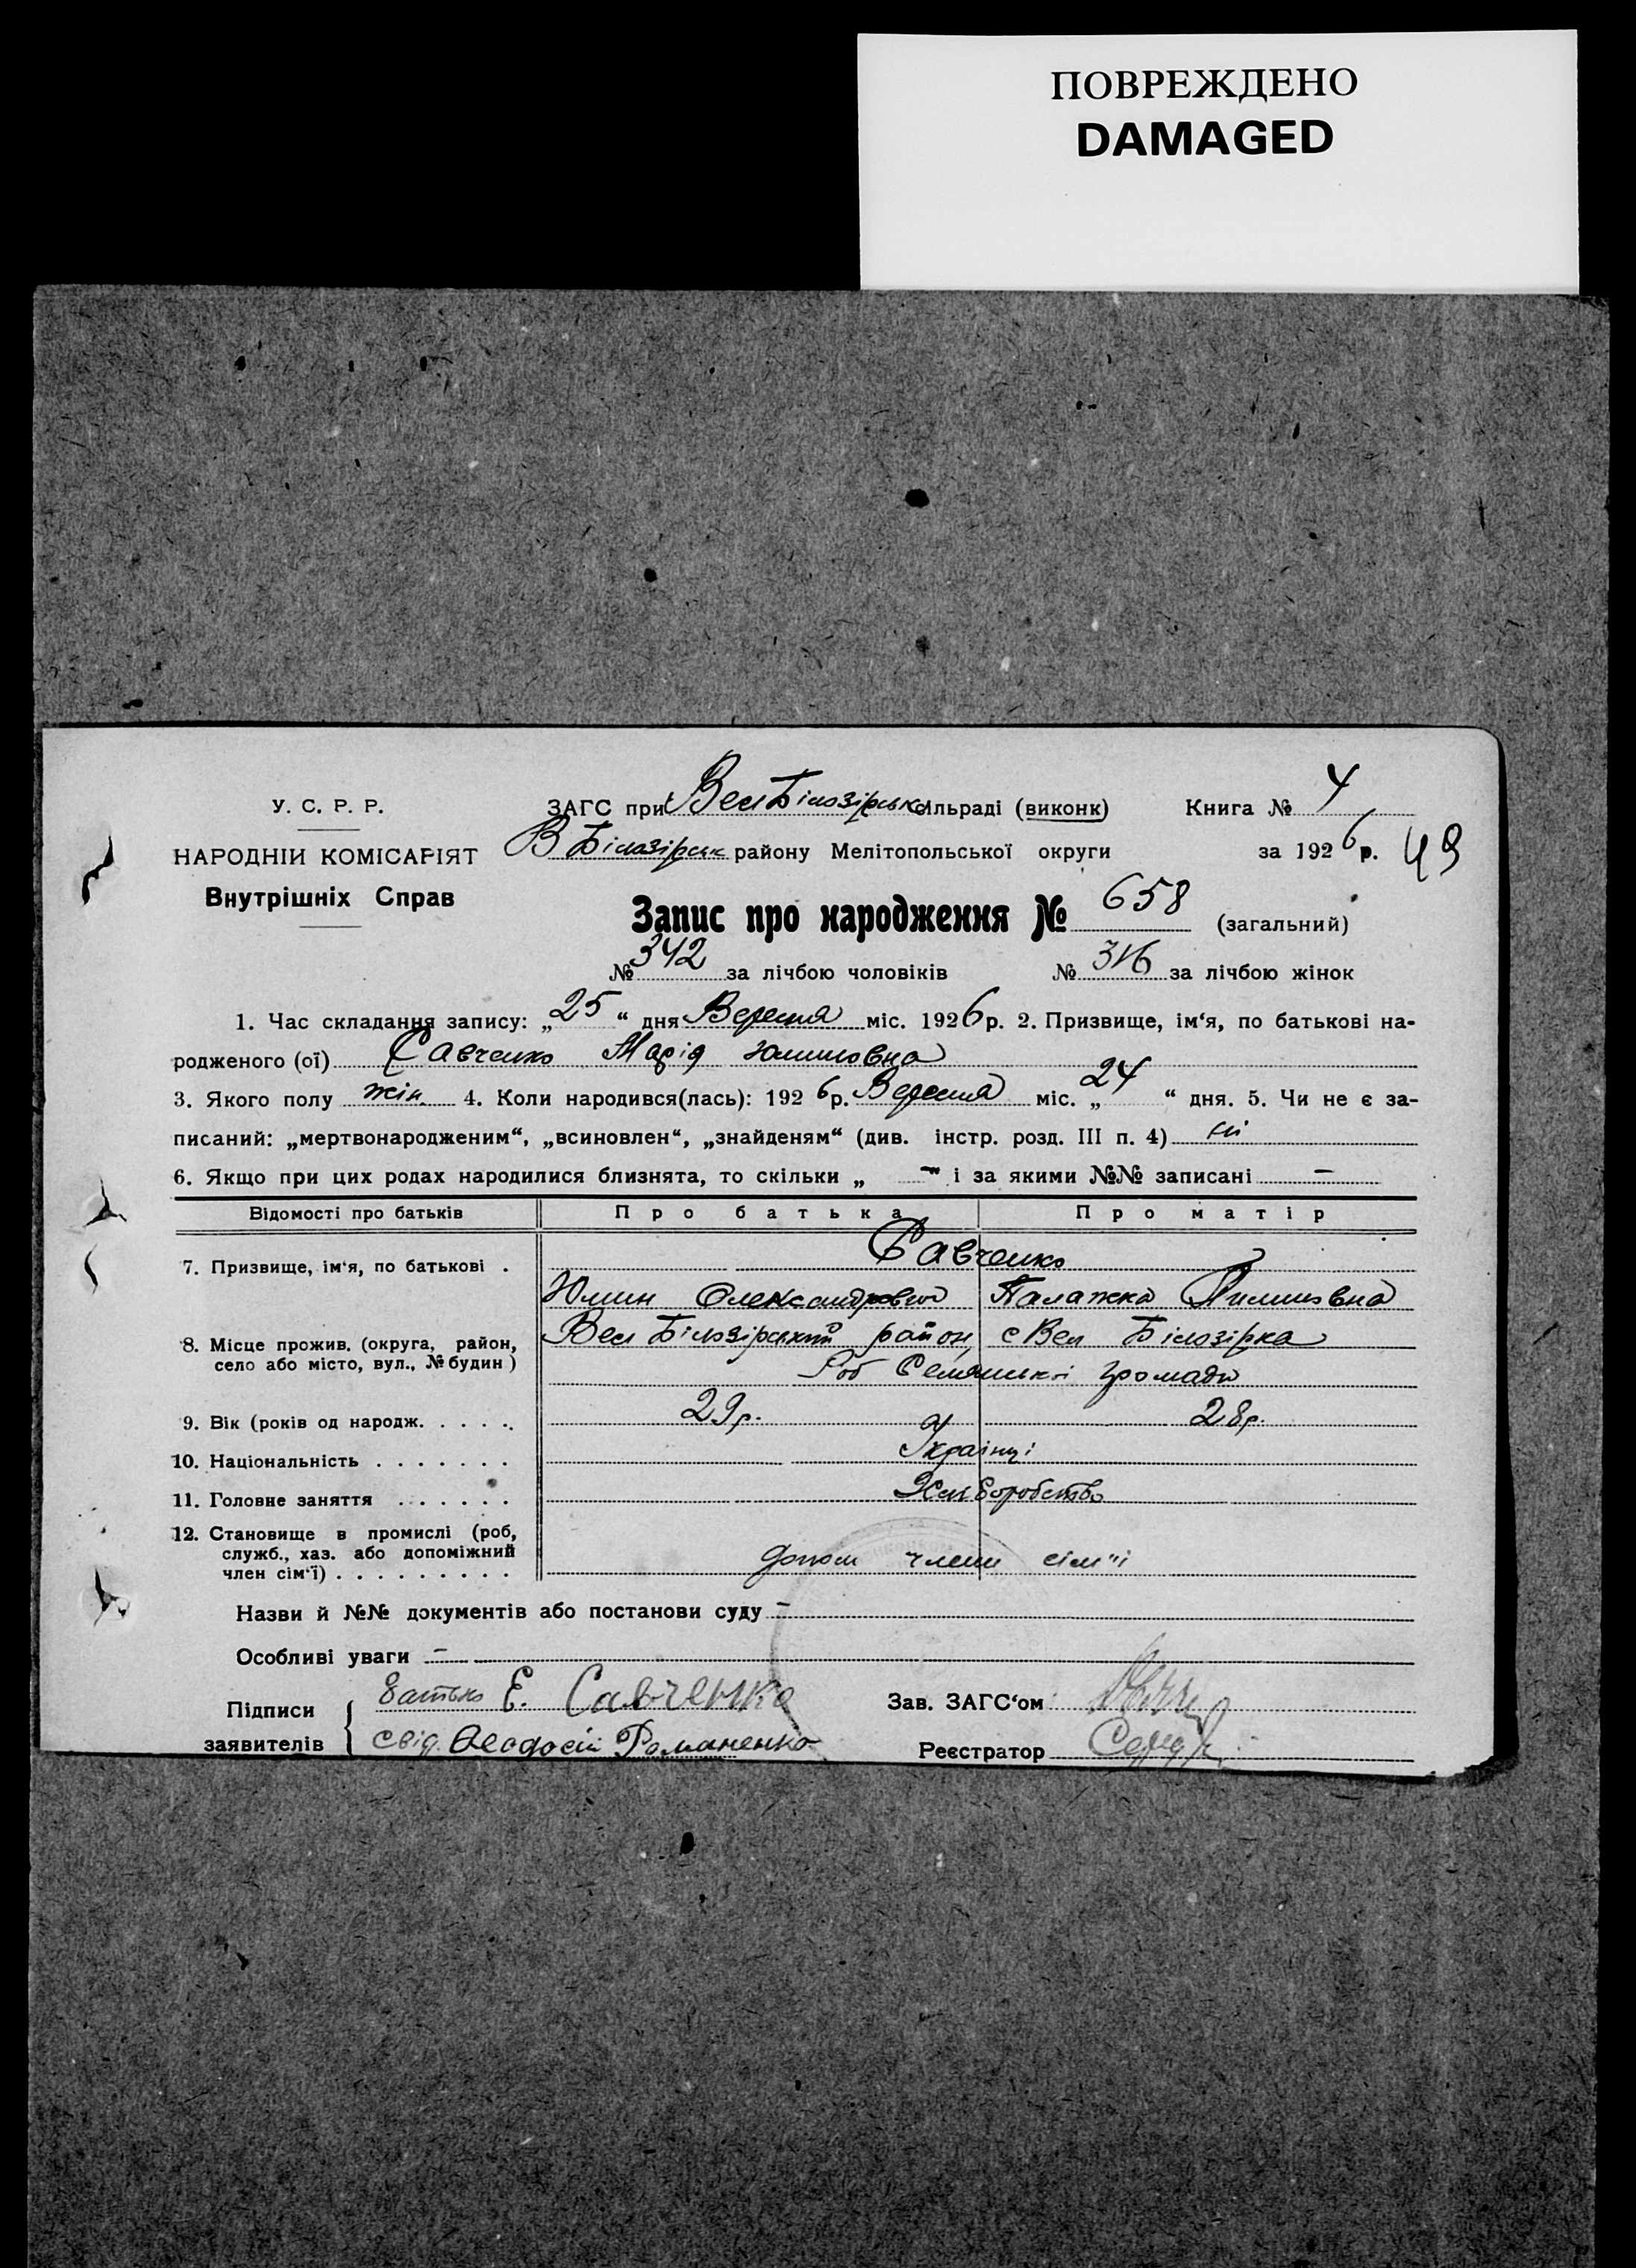 ПОВРЕЖДЕНО
DAMAGED
У. С. Р. Р.
НАРОДНІЙ КОМІСАРІЯТ
Внутрішніх Справ
ЗАГС при Вел Білозірськ сільраді (виконк) Книга № 4
В Білазірськ району Мелітопольської округи за 1926 р. 49
Запис про народження № 658 (загальний)
№ 342 за лічбою чоловіків № 316 за лічбою жінок
1. Час складання запису: „25“ дня Вересня міс. 1926 р. 2. Призвище, ім‘я, по батькові на-
родженого (ої) Савченко Марія Юхимовна
3. Якого полу жін. 4. Коли народився(лась): 1926 р. Вересня міс. „24“ дня. 5. Чи не є за-
писаний: „мертвонародженим“, „всиновлен“, „знайденям“ (див. інстр. розд. III п. 4) ні
6. Якщо при цих родах народилися близнята, то скільки „ — “ і за якими №№ записані —
Відомості про батьків Про батька Про матір
7. Призвище, ім‘я, по батькові . Савченко
Олександрович Палажка
8. Місце прожив. (округа, район, село або місто, вул., № будин) Вел Білозірський район, с Вел Білозірка
громади
9. Вік (років од народж. . . . . 29 р. 28 р.
10. Національність . . . . . . . Українці
11. Головне заняття . . . . . . Хліборобство
12. Становище в промислі (роб, служб., хаз. або допоміжний член сім‘ї) . . . . . . . . . допом члени сім"ї
Назви й №№ документів або постанови суду —
Особливі уваги —
Підписи заявителів { батько Е. Савченко Зав. ЗАГС‘ом
свід. Феодосій Романенко Реєстратор